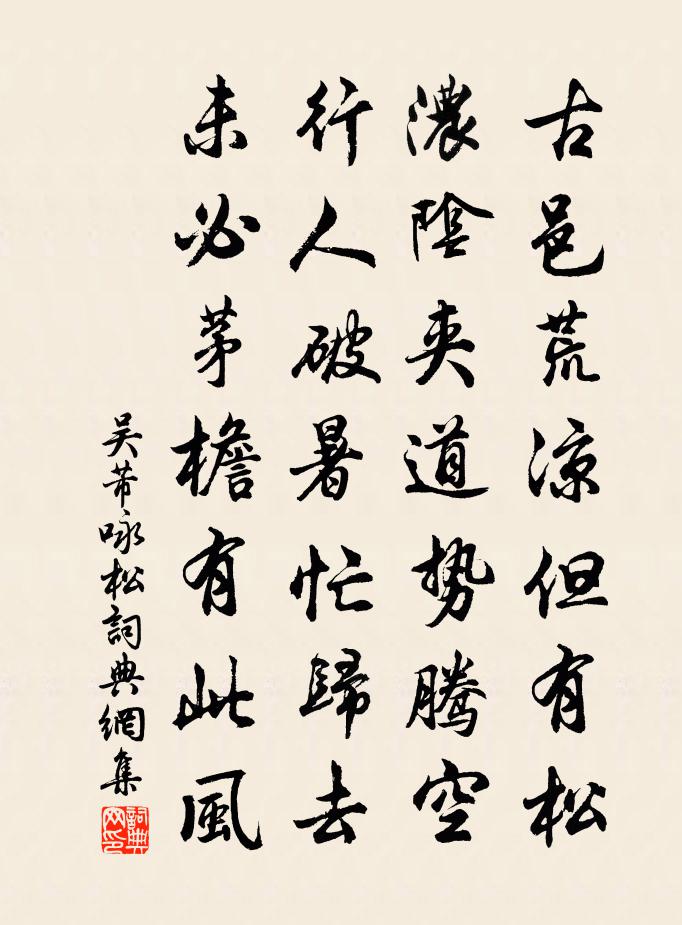 古邑荒涼但有松
濃陰夾道勢騰空
行人破暑忙歸去
未必茅檐有此風
吳芾咏松詞典網集
詞典網印